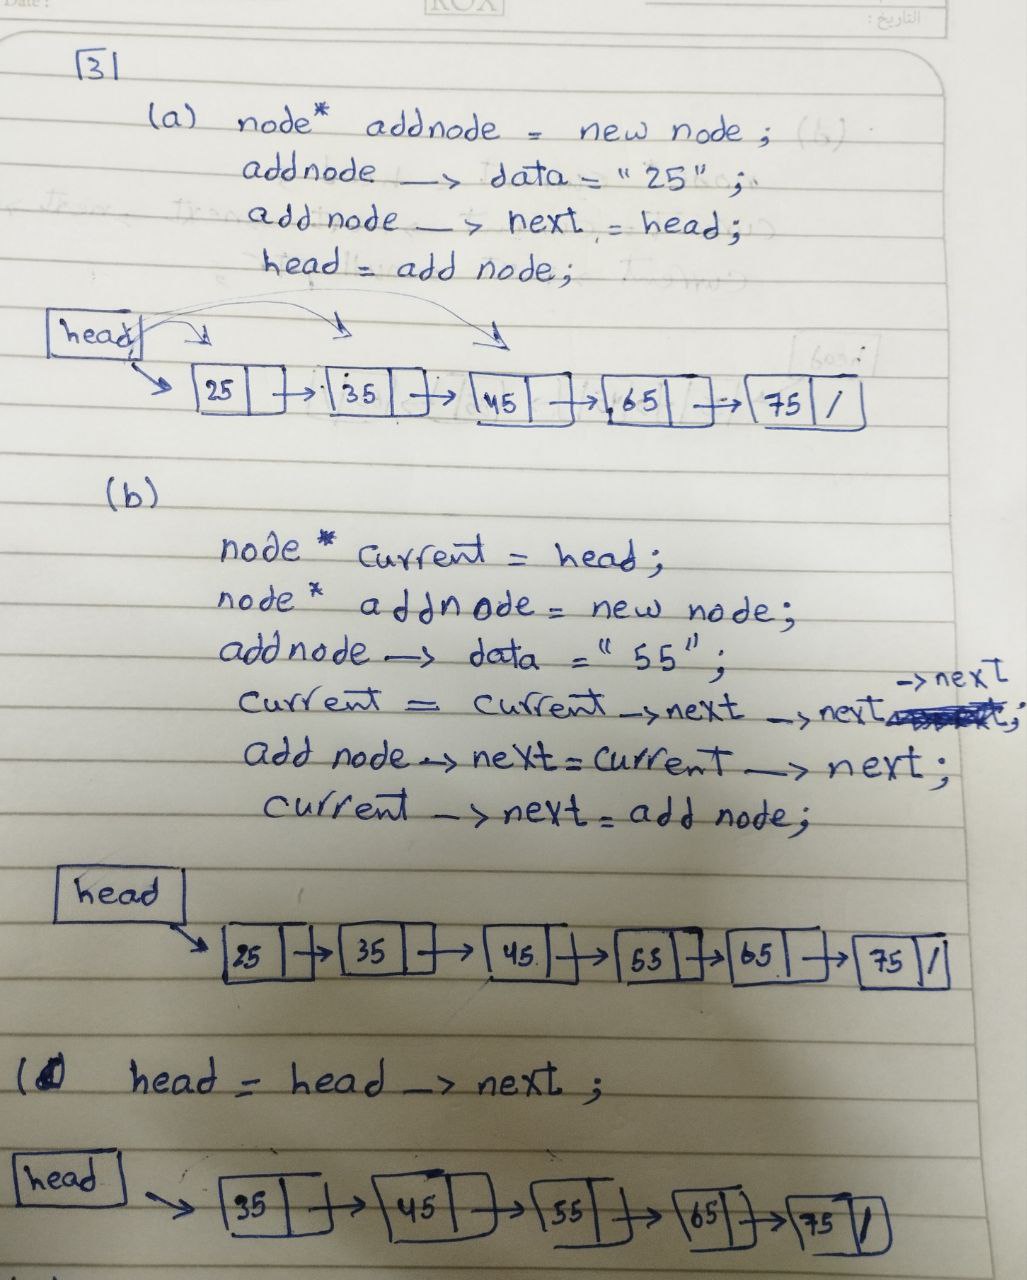 Date :
ROX
التاريخ :
3
(a) node* addnode = new node ;
addnode —> data = "25" ;
add node —> next = head;
head = add node;
head
25 35 45 65 75 /
(b)
node * current = head ;
node* addnode = new node;
addnode —> data = "55" ;
current = current —> next —> next —> next ;
add node —> next = current —> next ;
current —> next = add node;
head
25 35 45 55 65 75 /
( head = head —> next ;
head
35 45 55 65 75 /